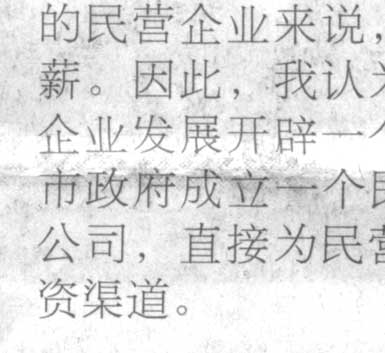 的民营企业来说，
薪。因此，我认为
企业发展开辟一个
市政府成立一个民
公司，直接为民营
资渠道。